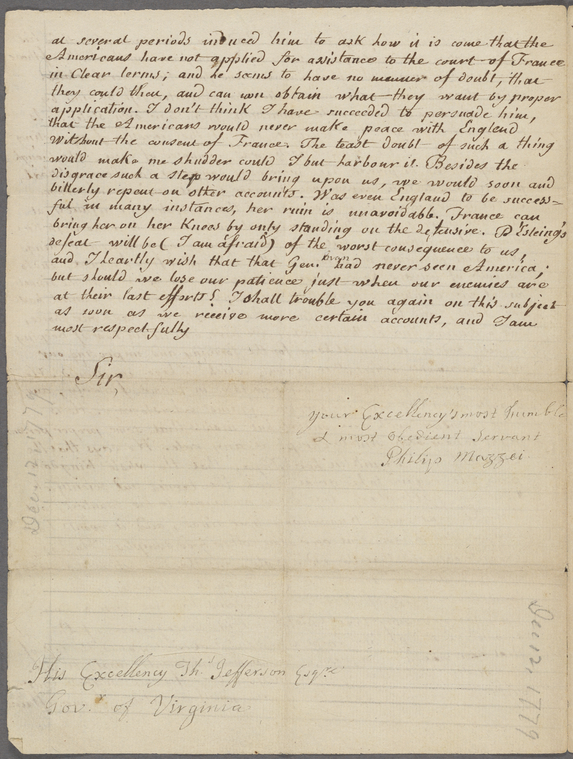 at several periods induced him to ask how it is come that the
Americans have not applied for assistance to the court of France
in Clear terms; and he seems to have no manner of doubt, that
they could then, and can now obtain what they want by proper
application. I don't think I have succeeded to persuade him,
that the Americans would never make peace with England
without the consent of France. The least doubt of such a thing
would make me shudder could I but harbour it. Besides the
disgrace such a step would bring upon us, we would soon and
bitterly repent on other accounts. Was even England to be success=
ful in many instances, her ruin is unavoidable. France can
bring her on her knees by only standing on the defensive. D'Esteing's
defeat will be (I am afraid) of the worst consequence to us,
and I heartly wish that that Gen: had never seen America;
but should we lose our patience just when our enemies are
at their last efforts? I shall trouble you again on this subject
as soon as we receive more certain accounts, and I am
most respectfully
Sir,
your Excellency's most humble
& most Obedient Servant
Philip Mazzei
His Excellency Th: Jefferson Esqre
Gov: of Virginia
1779